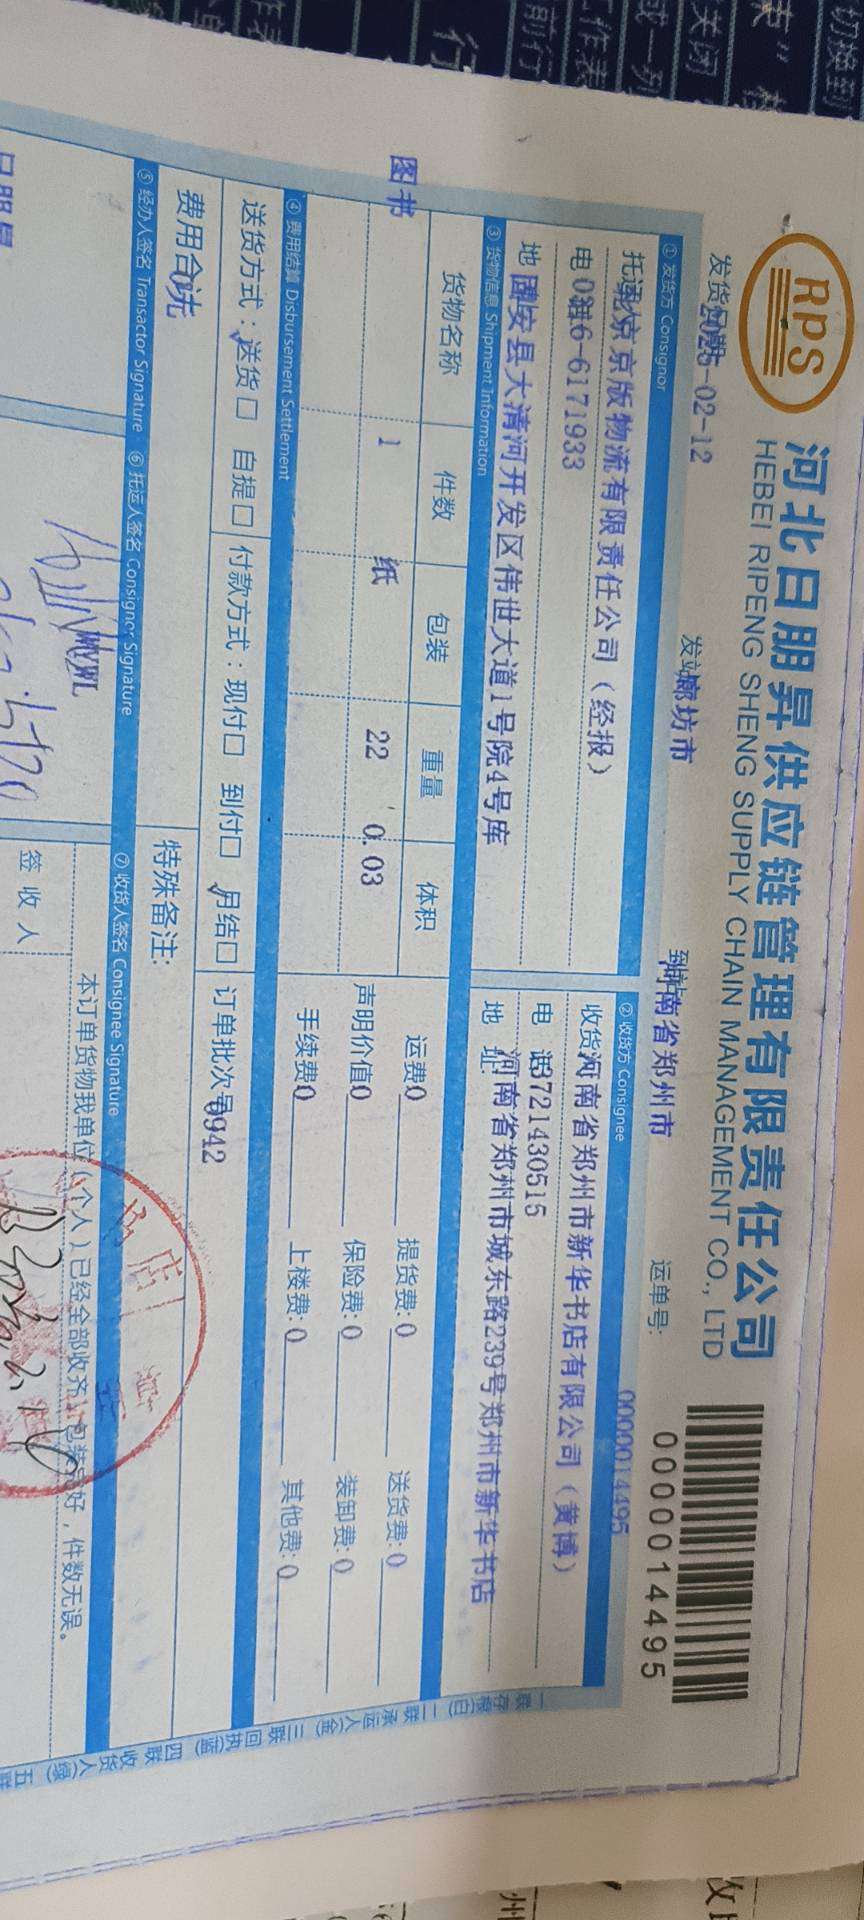 RPS
河北日朋昇供应链管理有限责任公司
HEBEI RIPENG SHENG SUPPLY CHAIN MANAGEMENT CO., LTD
0000014495
发货 2025-02-12
发站 廊坊市
河南省郑州市
运单号:
0000014495
① 发货方 Consignor
北京京版物流有限责任公司（经报）
电 0316-6171933
地 固安县大清河开发区伟世大道1号院4号库
② 收货方 Consignee
收货 河南省郑州市新华书店有限公司（黄博）
电 话 3721430515
地 址 河南省郑州市城东路239号郑州市新华书店
③ 货物信息 Shipment Information
货物名称 件数 包装 重量 体积
图书 1 纸 22 0.03
运费 0 提货费: 0 送货费: 0
声明价值 0 保险费: 0 装卸费: 0
手续费 0 上楼费: 0 其他费: 0
④ 费用结算 Disbursement Settlement
送货方式：送货□ 自提□ 付款方式：现付□ 到付□ 月结□ 订单批次号 0942
费用合
特殊备注:
⑤ 经办人签名 Transactor Signature ⑥ 托运人签名 Consignor Signature ⑦ 收货人签名 Consignee Signature
本订单货物我单位（个人）已经全部收齐，包装完好，件数无误。
签 收 人
一联存根(白) 二联承运人(金) 三联回执(蓝) 四联收货人(绿) 五联